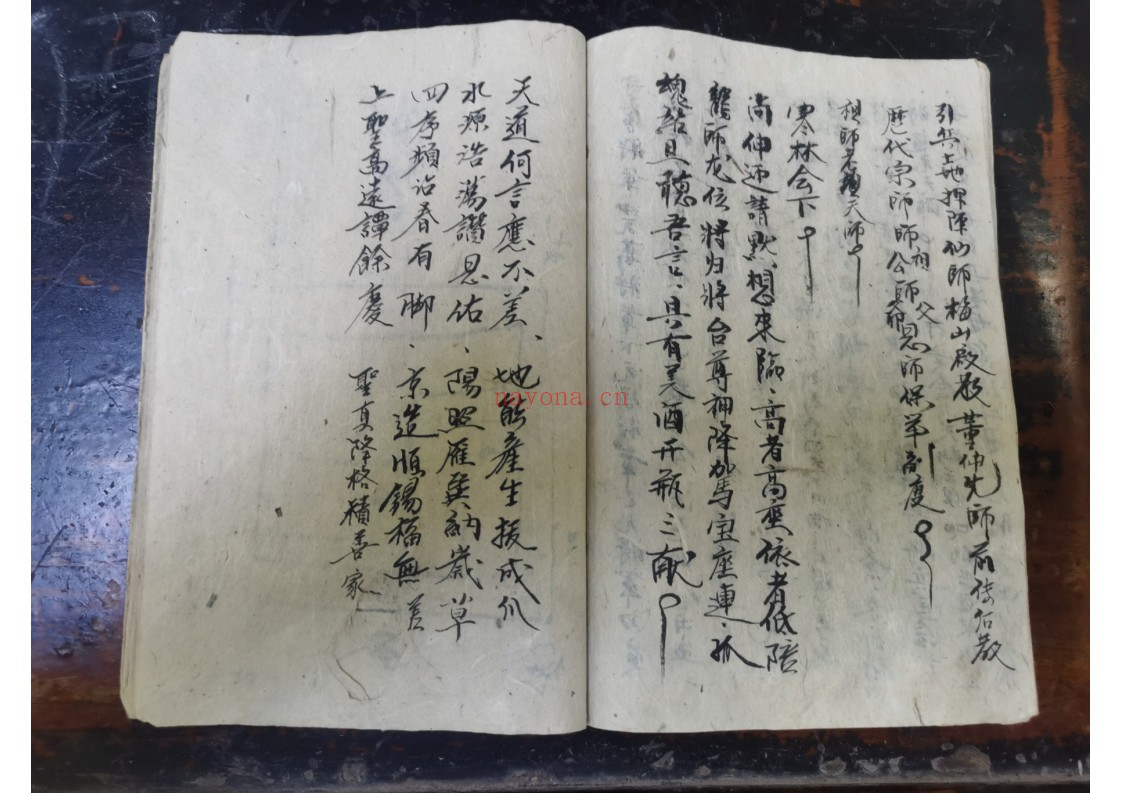 引兵土地押陣仙師梅山啟教董仲先師前傳后教
歷代宗師師祖公師父恩師保舉刹度
祖師天師
寒林会下
尚伸迎請默想來臨、高者高座依者低陪
龍师龙位將归將台尊神降加馬宝座連、孤
魂語且聴吾言、具有美酒开瓶三献
天道何言應不差、地能產生援成仈
水源浩蕩讚恩佑、陽照雁奠納歲草
四序頻沾春有脚、京造順錫福無差
上聖高遠譚餘慶 聖真降格積善家
nayona.cn